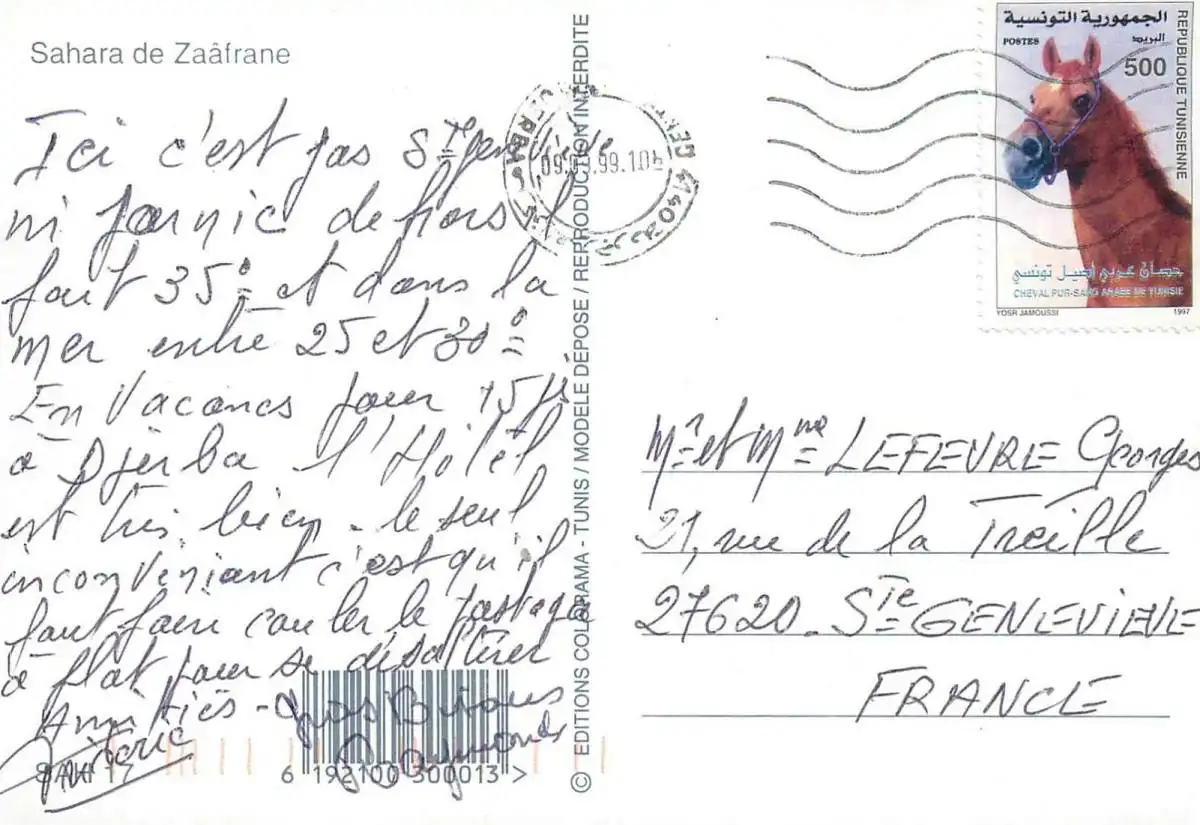 Sahara de Zaâfrane
Ici c'est pas Ste Geneviève
ni Jarnic dehors il
fait 35° et dans la
mer entre 25 et 30°
En Vacances pour 15 Js
à Djerba l'Hôtel
est très bien - le seul
inconvéniant c'est qu'il
faut faire couler le
à plat pour se désaltérer
Amitiés - Gros Bisous
Raymonde
6 192100 300013 >
© EDITIONS COLORAMA - TUNIS / MODELE DEPOSE / REPRODUCTION INTERDITE
.99.10
4140
الجمهورية التونسية
البريد
POSTES
500
REPUBLIQUE TUNISIENNE
حصان عربي أصيل تونسي
CHEVAL PUR-SANG ARABE DE TUNISIE
YOSR JAMOUSSI 1997
Mr et Mme LEFEVRE Georges
21, rue de la Treille
27620 - Ste GENEVIEVE
FRANCE